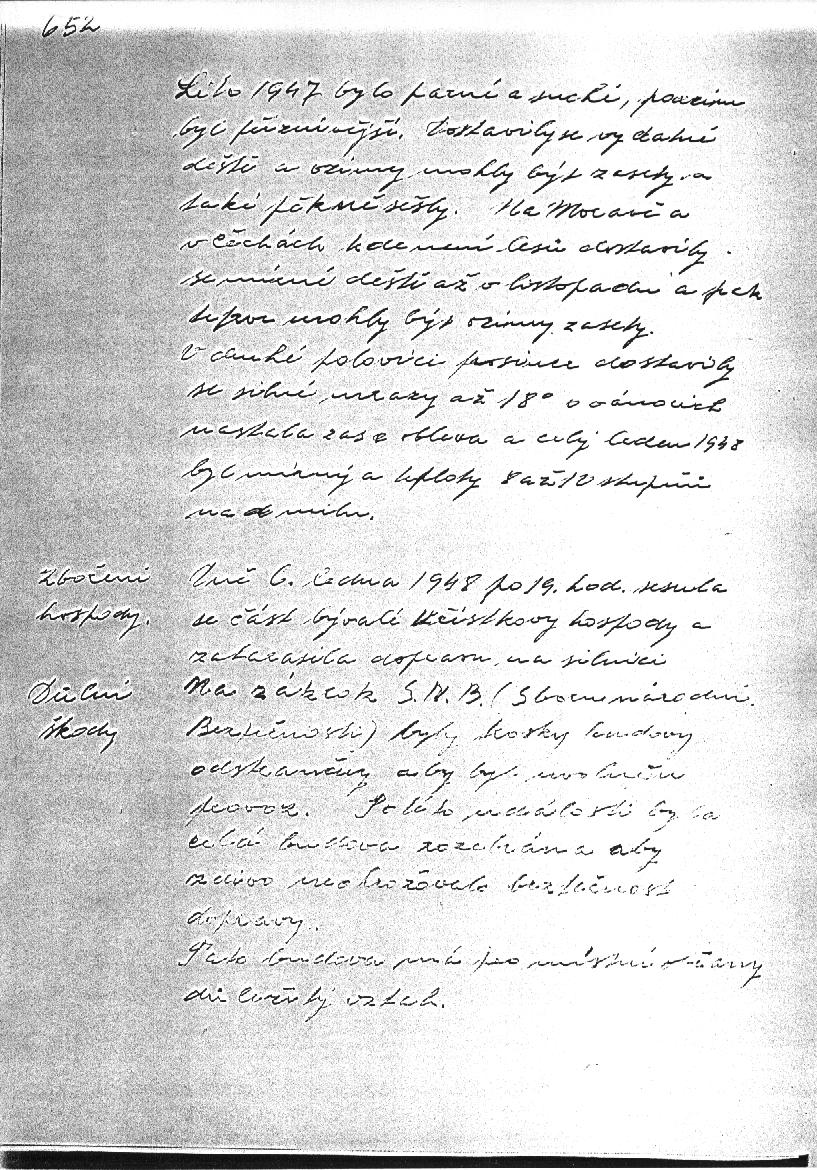 652
Léto 1947 bylo parné a suché, podzim
byl příznivější. Dostavily se vydatné
deště a ozimy mohly být zasety a
také pěkně sešly. Na Moravě a
v Čechách kde není lesů dostavily
se mírné deště až v listopadu a pak
teprv mohly být ozimy zasety.
V druhé polovici prosince dostavily
se silné mrazy až 18° o vánocích
nastala zase obleva a celý leden 1948
byl mírný a teploty 8 až 10 stupňů
nad nulu.
Zbočení
hospody.
Dne 6. ledna 1948 po 19. hod. sesula
se část bývalé Křístkovy hospody a
zatarasila dopravu na silnici
Důlní
škody
Na zákrok S.N.B. (Sboru národní
Bezpečnosti) byly trosky budovy
odstraněny aby byl uvolněn
provoz. Po této události byla
celá budova rozebrána aby
zdivo neohrožovalo bezpečnost
dopravy.
Tato budova má pro místní občany
důležitý vztah.